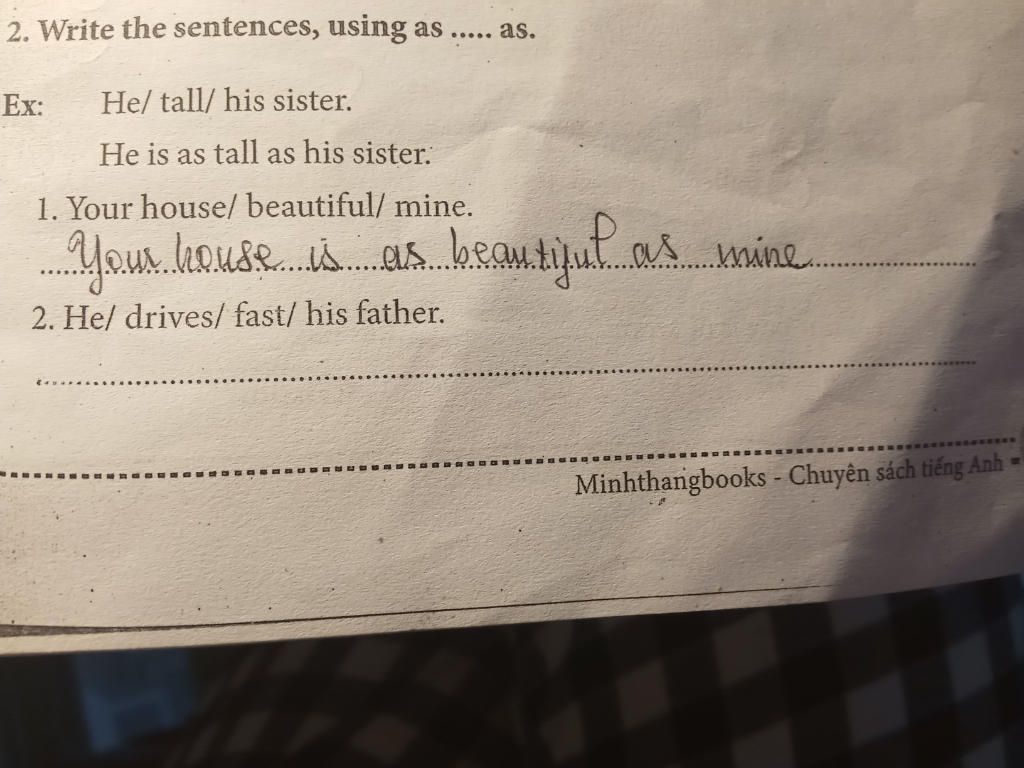 2. Write the sentences, using as ..... as.
Ex: He/ tall/ his sister.
He is as tall as his sister.
1. Your house/ beautiful/ mine.
Your house is as beautiful as mine
2. He/ drives/ fast/ his father.
Minhthangbooks - Chuyên sách tiếng Anh